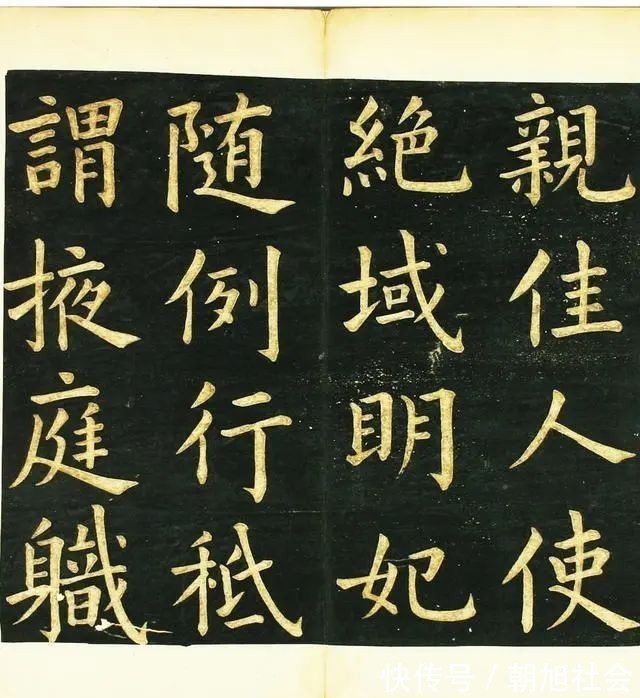 親佳人使
絶域明妃
随例行秪
謂掖庭軄
快传号/朝旭社会